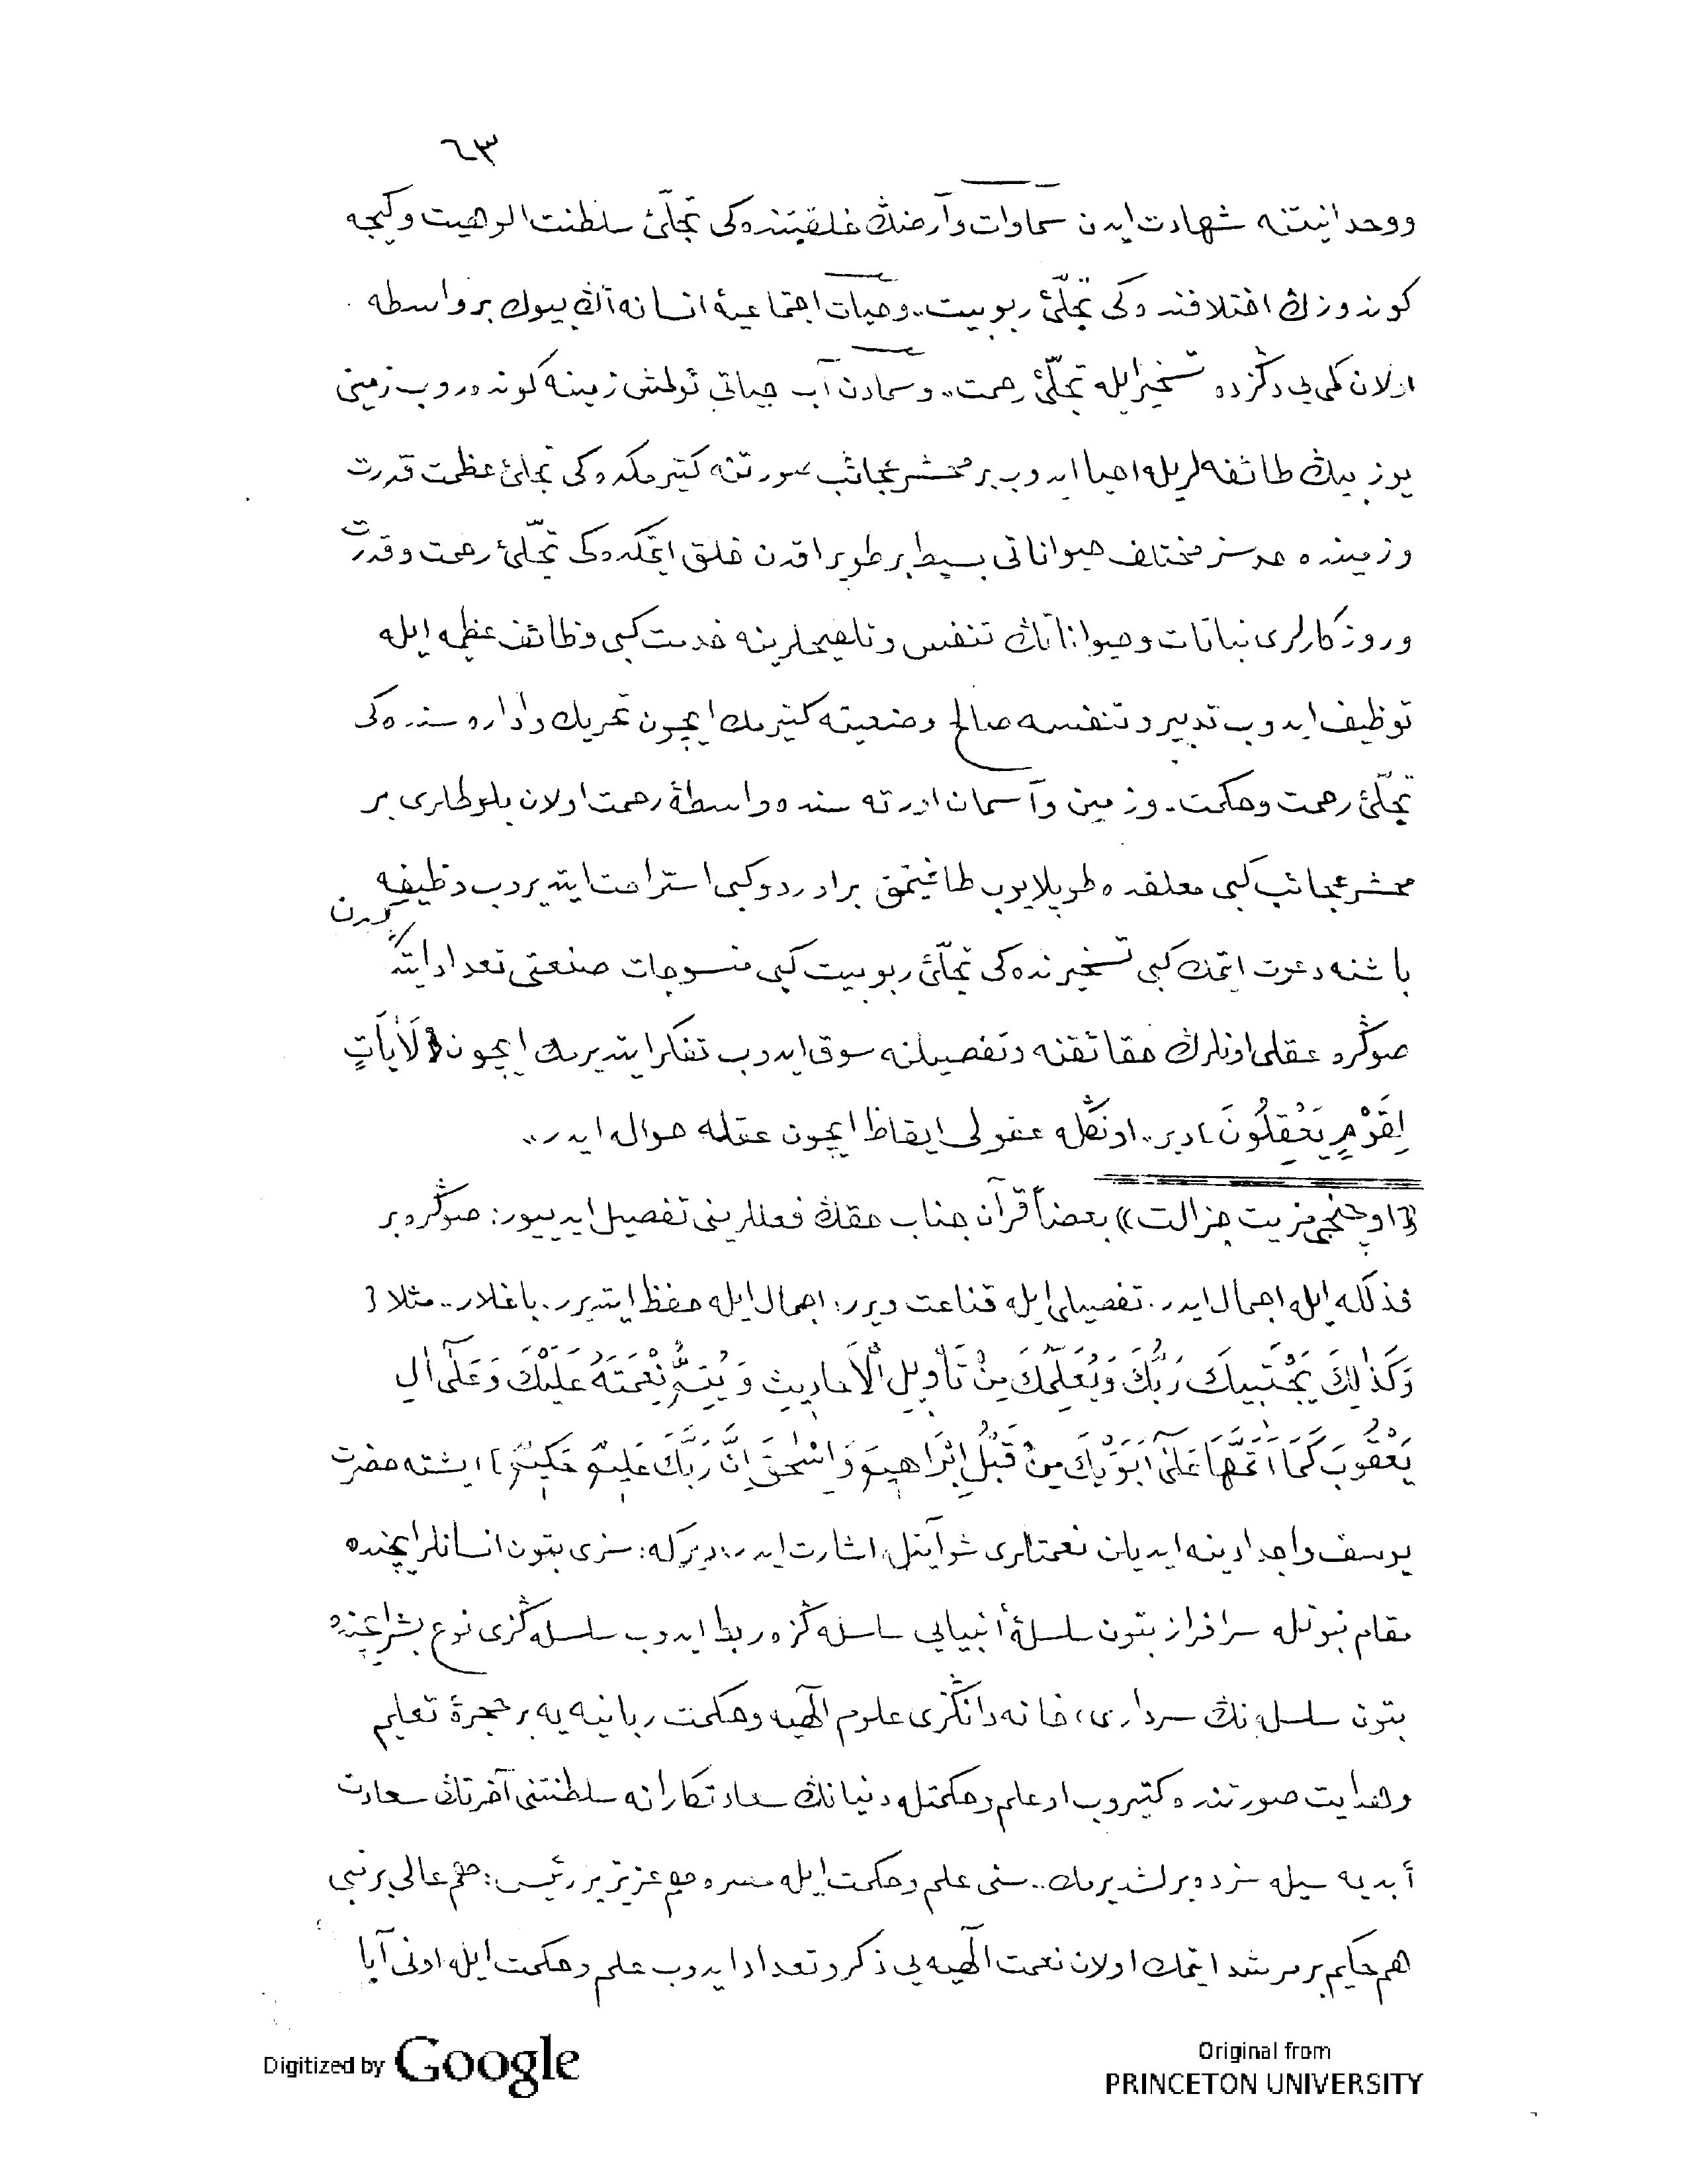 ٦٣
ووحدانيتنه شهادت ايدن سماوات وآرضڭ خلقتنده كى تجلّئ سلطنت الوهيت وكيجه
كوندوزڭ اختلافنده كى تجلّئ ربوبيت.. وحيات اجتماعيهٔ انسانه اڭ بيوك بر واسطه
اولان كمى يى دڭزده تسخير ايله تجلّئ رحمت.. وسمادن آب حياتى ئولمش زمينه كوندروب زمينى
يوز بيڭ طائفه لريله احيا ايدوب بر محشر عجائب صورتنه كتيرمكده كى تجلئ عظمت قدرت
وزمينده حدسز مختلف حيواناتى بسيط بر طوپراقدن خلق ايتمكده كى تجلّئ رحمت وقدرت
وروزكارلرى نباتات وحيواناتڭ تنفس وتلقيحلرينه خدمت كبى وظائف عظيمه ايله
توظيف ايدوب تدبير وتنفسه صالح وضعيته كتيرمك ايچون تحريك واداره سنده كى
تجلّئ رحمت وحكمت.. وزمين وآسمان اورته سنده واسطهٔ رحمت اولان بلوطلرى بر
محشر عجائب كبى معلقده طوپلايوب طاغيتمق بر اوردو كبى استراحت ايتديروب وظيفه
باشنه دعوت ايتمك كبى تسخيرنده كى تجلّئ ربوبيت كبى منسوجات صنعتى تعداد ايتدكدن
صوڭره عقلى اونلرڭ حقائقنه وتفصيلنه سوق ايدوب تفكر ايتديرمك ايچون ﴿ لَاٰيَاتٍ
لِقَوْمٍ يَعْقِلُونَ ﴾ دير.. اونڭله عقولى ايقاظ ايچون عقله حواله ايدر..
﴿ اوچنجى مزيت جزالت ﴾ بعضاً قرآن جناب حقڭ فعللرينى تفصيل ايدييور: صوڭره بر
فذلكه ايله اجمال ايدر. تفصيلى ايله قناعت ويرر؛ اجمال ايله حفظ ايتديرر. باغلار.. مثلا ﴿
وَكَذٰلِكَ يَجْتَبِيكَ رَبُّكَ وَيُعَلِّمُكَ مِنْ تَأْوِيلِ الْاَحَادِيثِ وَيُتِمُّ نِعْمَتَهُ عَلَيْكَ وَعَلٰٓى اٰلِ
يَعْقُوبَ كَمَا اَتَمَّهَا عَلٰٓى اَبَوَيْكَ مِنْ قَبْلُ اِبْرَاهِيمَ وَاِسْحٰقَ اِنَّ رَبَّكَ عَلِيمٌ حَكِيمٌ ﴾ ايشته حضرت
يوسف واجدادينه ايديلن نعمتلرى شو آيتله اشارت ايدر: ديركه: سزى بتون انسانلر ايچنده
مقام نبوتله سرافراز بتون سلسلهٔ أنبيايى سلسله ڭزه ربط ايدوب سلسله ڭزى نوع بشر ايچنده
بتون سلسله نڭ سردارى، خانه دانڭزى علوم الٰهيه وحكمت ربانيه يه بر حجرهٔ تعليم
وهدايت صورتنده كتيروب او علم وحكمتله دنيانڭ سعادتكارانه سلطنتنى آخرتڭ سعادت
أبديه سيله سزده برلشديرمك.. سنى علم وحكمت ايله مصره هم عزيز بر رئيس: هم عالى بر نبى
هم حكيم بر مرشد ايتمك اولان نعمت الٰهيه يى ذكر وتعداد ايدوب علم وحكمت ايله اونى آبا
Digitized by Google
Original from
PRINCETON UNIVERSITY